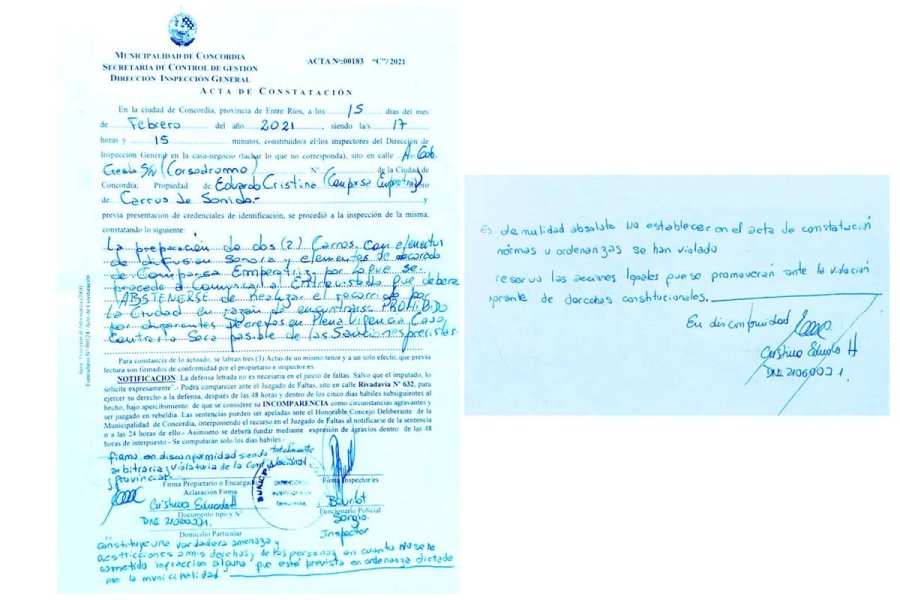 MUNICIPALIDAD DE CONCORDIA
SECRETARIA DE CONTROL DE GESTIÓN
DIRECCIÓN INSPECCIÓN GENERAL
ACTA Nº:00183 "C"/ 2021
ACTA DE CONSTATACIÓN
En la ciudad de Concordia, provincia de Entre Ríos, a los 15 días del mes
de Febrero del año 2021, siendo la/s 17
horas y 15 minutos, constituido/s el/los inspectores del Dirección de
Inspección General en la casa-negocio (tachar lo que no corresponda), sito en calle A. Gob.
Cresto S/N (Corsodromo) Nº de la Ciudad de
Concordia; Propiedad de Eduardo Cristina (Comparsa Emperatriz)
de Carros de Sonido.- y
previa presentación de credenciales de identificación, se procedió a la inspección de la misma,
constatando lo siguiente:
La preparación de dos (2) Carros, con elementos
de difusion Sonora y elementos de decorado
de Comparsa Emperatriz, por lo que se
procede a Comunicar al Entrevistado que debera
ABSTENERSE de Realizar el recorrido por
la Ciudad en razon de encontrarse PROHIBIDO
por diferentes decretos en Plena Vigencia Caso
Contrario Sera pasible de las Sanciones previstas
Para constancia de lo actuado, se labran tres (3) Actas de un mismo tenor y a un solo efecto, que previa
lectura son firmados de conformidad por el propietario e inspector/es
NOTIFICACION. La defensa letrada no es necesaria en el juicio de faltas. Salvo que el imputado, lo
solicite expresamente".- Podra comparecer ante el Juzgado de Faltas, sito en calle Rivadavia Nº 632, para
ejercer su derecho a la defensa, después de las 48 horas y dentro de los cinco días hábiles subsiguientes al
hecho, bajo apercibimiento de que se considere su INCOMPARENCIA como circunstancias agravantes y
ser juzgado en rebeldía. Las sentencias pueden ser apeladas ante el Honorable Concejo Deliberante de
la Municipalidad de Concordia, interponiendo el recurso en el Juzgado de Faltas al notificarle de la sentencia
o a las 24 horas de ello.- Asimismo se deberá fundar mediante expresión de agravios dentro de las 48
horas de interpuesto.- Se computarán solo los días hábiles.
firmo en disconformidad siendo totalmente
arbitraria y violatoria de la Const. nacional
y provincial.
Firma Propietario o Encargado
Firma Inspector/es
Aclaración Firma
Cristina Eduardo H
Documento tipo y Nº
DNI 21060021.
Domicilio Particular
Funcionario Policial
Sergio
Inspector
constituye una verdadera amenaza y
restricciones a mis derechos y de las personas en cuanto no se ha
cometido infraccion alguna que este prevista en ordenanza dictada
por la municipalidad.
Es de nulidad absoluta No establecer en el acta de constatación
normas u ordenanzas se han violado
reservo las acciones legales que se promoveran ante la violacion
de derechos constitucionales.
En disconformidad
Cristina Eduardo H
DNI 21060021.